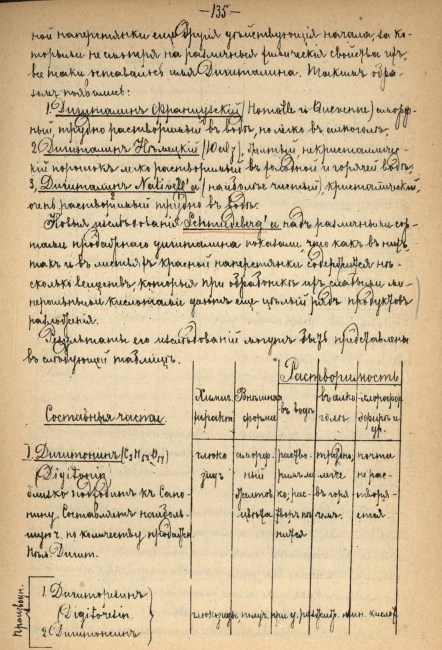 —135—
ной наперстянки еще другія дѣйствующія начала, за ко-
торыми не смотря на различныя физическія свойства ихъ,
все таки оставалось имя Дигиталина. Такимъ обра-
зомъ появились:
1. Дигиталинъ Французскій (Homolle и Quevenne) аморф-
ный, трудно растворимый въ водѣ, но легко въ алкоголѣ.
2. Дигиталинъ Нѣмецкій желтый некристалличес-
кій порошокъ легко растворимый въ холодной и горячей водѣ.
3. Дигиталинъ Nativell'я (наиболѣе чистый) кристаллическій,
очень растворимый трудно въ водѣ.
Новыя изслѣдованія Schmiedeberg'а надъ различными сор-
тами продажнаго дигиталина показали, что какъ въ нихъ,
такъ и въ листьяхъ красной наперстянки содержится нѣ-
сколько веществъ, которыя при обработкѣ ихъ слабыми ми-
неральными кислотами даютъ еще цѣлый рядъ продуктовъ
разложенія.
Результаты его изслѣдованій могутъ быть представлены
въ слѣдующей таблицѣ.
Растворимость
Составныя части.
Химич. характ.
Внѣшняя форма
въ водѣ
въ алко-
голѣ
хлороформѣ
эфирѣ и
др.
1. Дигитонинъ
(Digitonin)
близко подходитъ къ Сапо-
нину. Составляетъ наиболь-
шую ч. по количеству продажн.
Нѣм. Дигит.
глюко
зидъ
аморф-
ный
желтов.
цвѣта
раство-
римъ легко
трудно,
легче
въ горя-
чемъ.
почти
не рас-
творя-
ется.
Производн.
1. Дигиторезинъ
(Digitoresin)
2. Дигитонеинъ
глюкозиды, получ. при минер. кислот.